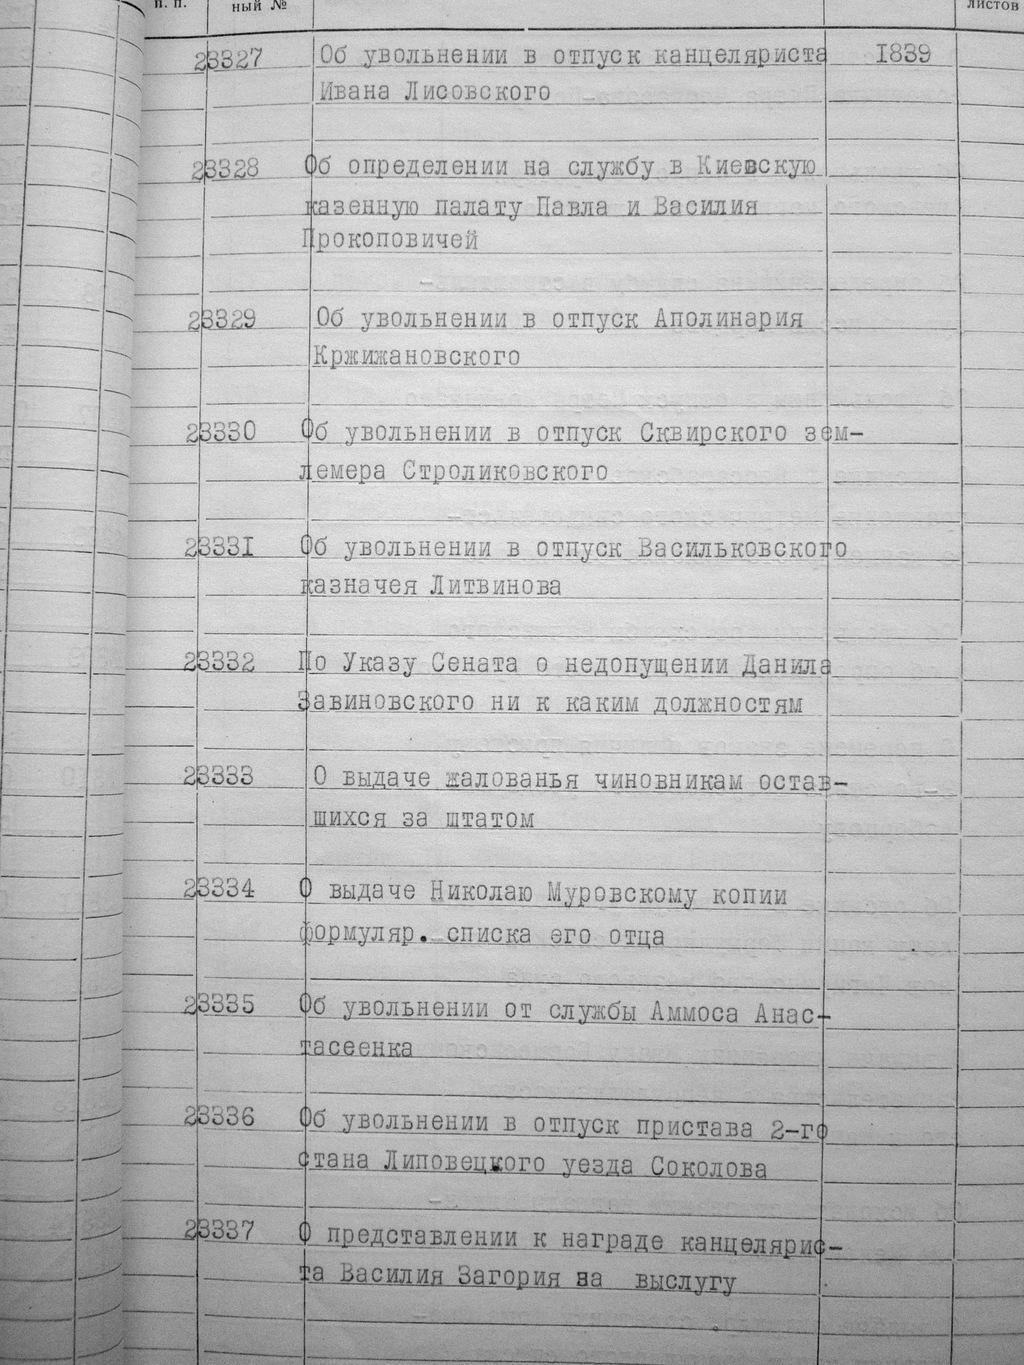 п. п. ный № листов
23327 Об увольнении в отпуск канцеляриста 1839
Ивана Лисовского
23328 Об определении на службу в Киевскую
казенную палату Павла и Василия
Прокоповичей
23329 Об увольнении в отпуск Аполинария
Кржижановского
23330 Об увольнении в отпуск Сквирского зем-
лемера Строликовского
23331 Об увольнении в отпуск Васильковского
казначея Литвинова
23332 По Указу Сената о недопущении Данила
Завиновского ни к каким должностям
23333 О выдаче жалованья чиновникам остав-
шихся за штатом
23334 О выдаче Николаю Муровскому копии
формуляр. списка его отца
23335 Об увольнении от службы Аммоса Анас-
тасеенка
23336 Об увольнении в отпуск пристава 2-го
стана Липовецкого уезда Соколова
23337 О представлении к награде канцелярис-
та Василия Загория за выслугу